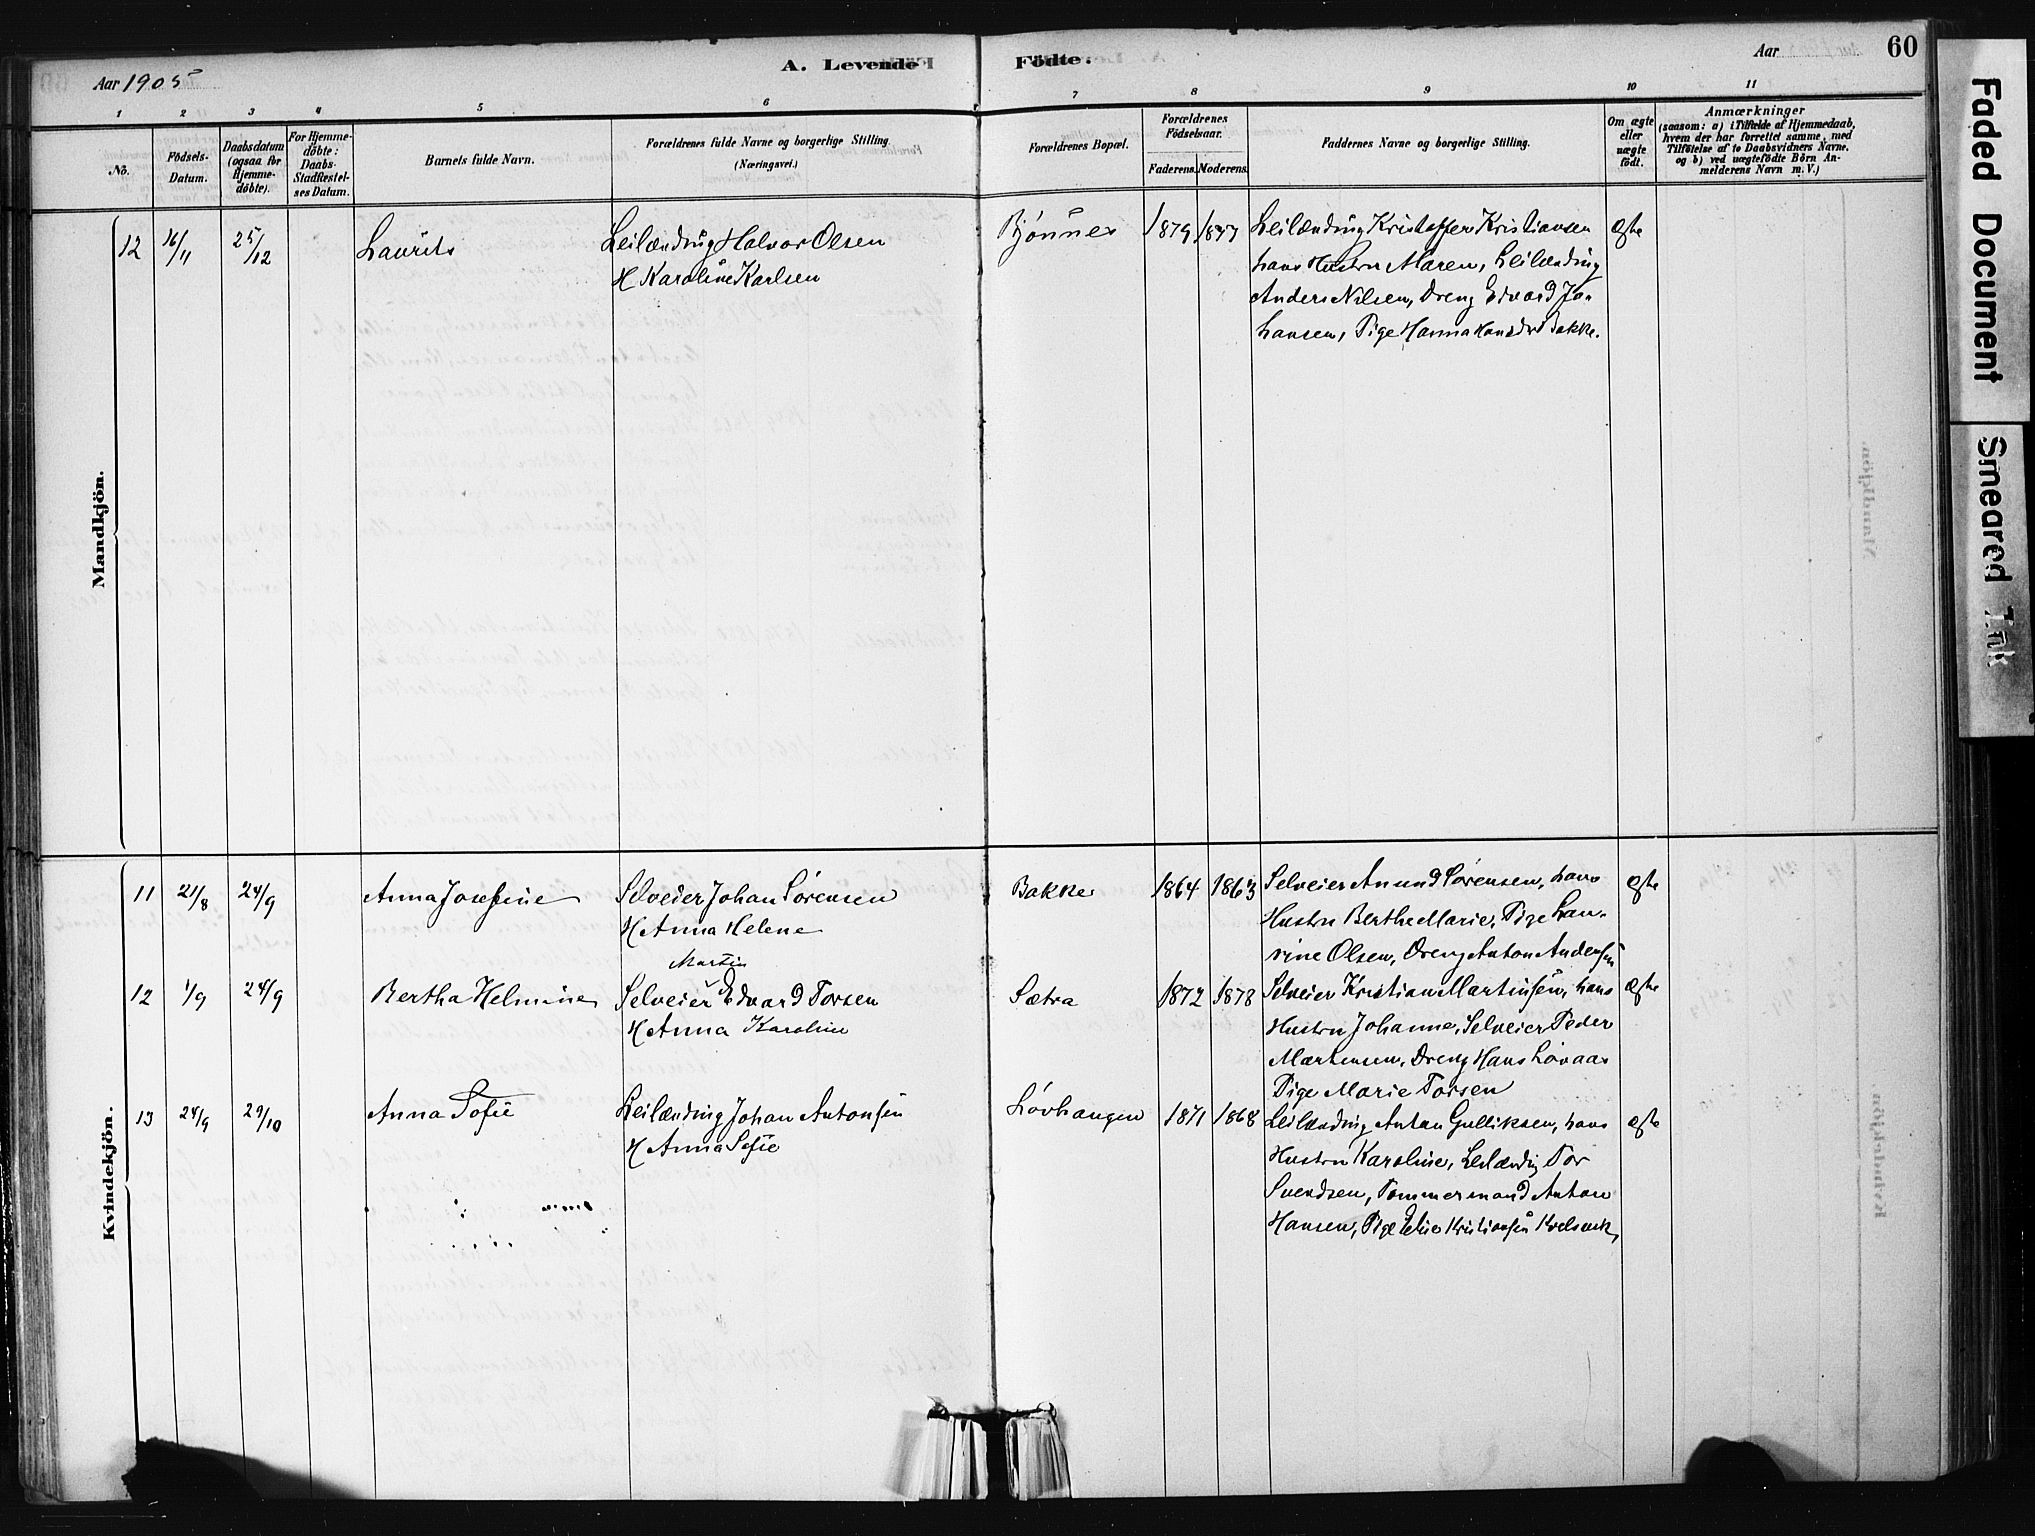 Aar 1905
A. Levende Fødte.
Aar
60
1 2 3 4 5 6 7 8 9 10 11
No.
Fødsels-Datum.
Daabsdatum (ogsaa for Hjemmedøbte).
For Hjemmedøbte: Daabs-Stadfæstelses Datum.
Barnets fulde Navn.
Forældrenes fulde Navne og borgerlige Stilling.
(Næringsvei.)
Forældrenes Bopæl.
Forældrenes Fødselsaar.
Faderens. Moderens.
Faddernes Navne og borgerlige Stilling.
Om ægte eller uægte født.
Anmærkninger
(saasom: a) i Tilfælde af Hjemmedaab,
hvem der har forrettet samme, med
Tilføielse af to Daabsvidners Navne.
og b) ved uægtefødte Børn An-
melderens Navn m. V.)
Mandkjön.
12 16/11 25/12 Laurits Leilænding Halvor Olsen Bjønnes 1879 1877 Leilænding Kristoffer Kristiansen ægte
H Karoline Karlsen hans Hustru Maren, Leilænding
Anders Nilsen, Dreng Edvard Jo-
hansen, Pige Hanna Hansdr Bakke.
Kvindekjön.
11 21/8 24/9 Anna Josefine Selveier Johan Sørensen Bakke 1864 1863 Selveier Anund Sørensen, hans ægte
H Anna Helene Hustru Berthe Marie, Pige Lau-
rine Olsen, Dreng Anton Andersen
Martin
12 1/9 24/9 Bertha Helmine Selveier Edvard Torsen Sætra 1872 1878 Selveier Kristian Martinsen, hans ægte
H Anna Karoline Hustru Johanne, Selveier Peder
Martensen, Dreng Hans Løvaas
Pige Marie Torsen
13 24/9 29/10 Anna Sofie Leilænding Johan Antonsen Løvhaugen 1871 1868 Leilænding Anton Gulliksen, hans ægte
H Anna Sofie Hustru Karoline, Leilændig Tor
Svendsen, Tømmermand Anton
Hansen, Pige Kristiansen
Faded Document
Smeared Ink